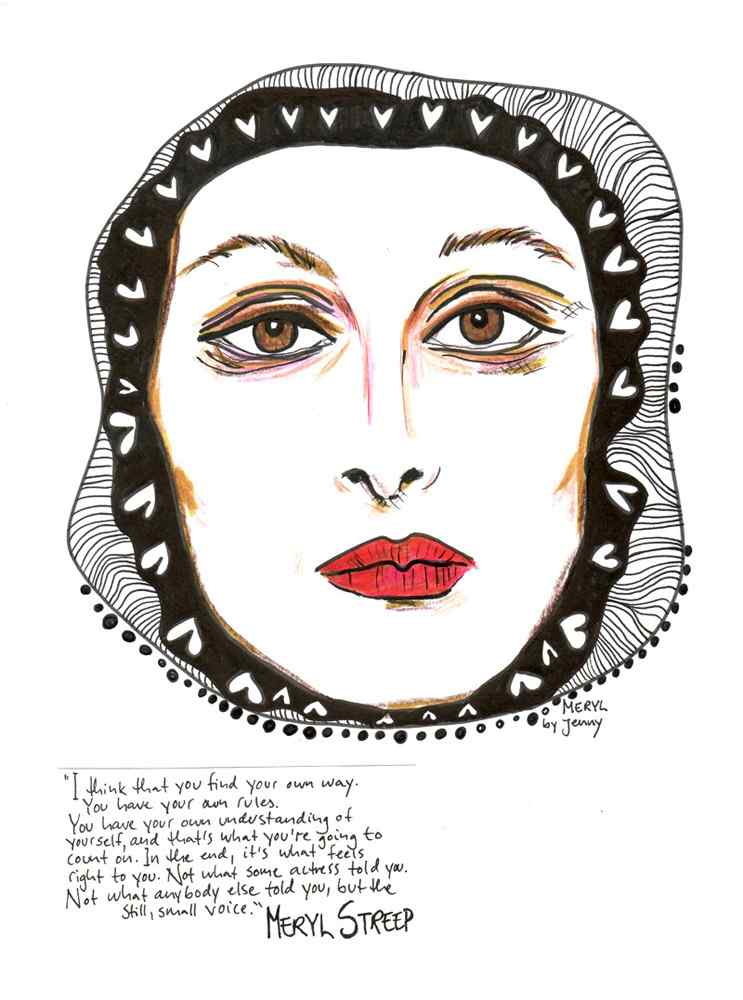 MERYL
by Jenny
"I think that you find your own way.
You have your own rules.
You have your own understanding of
yourself, and that's what you're going to
count on. In the end, it's what feels
right to you. Not what some actress told you.
Not what anybody else told you, but the
still, small voice."
MERYL STREEP